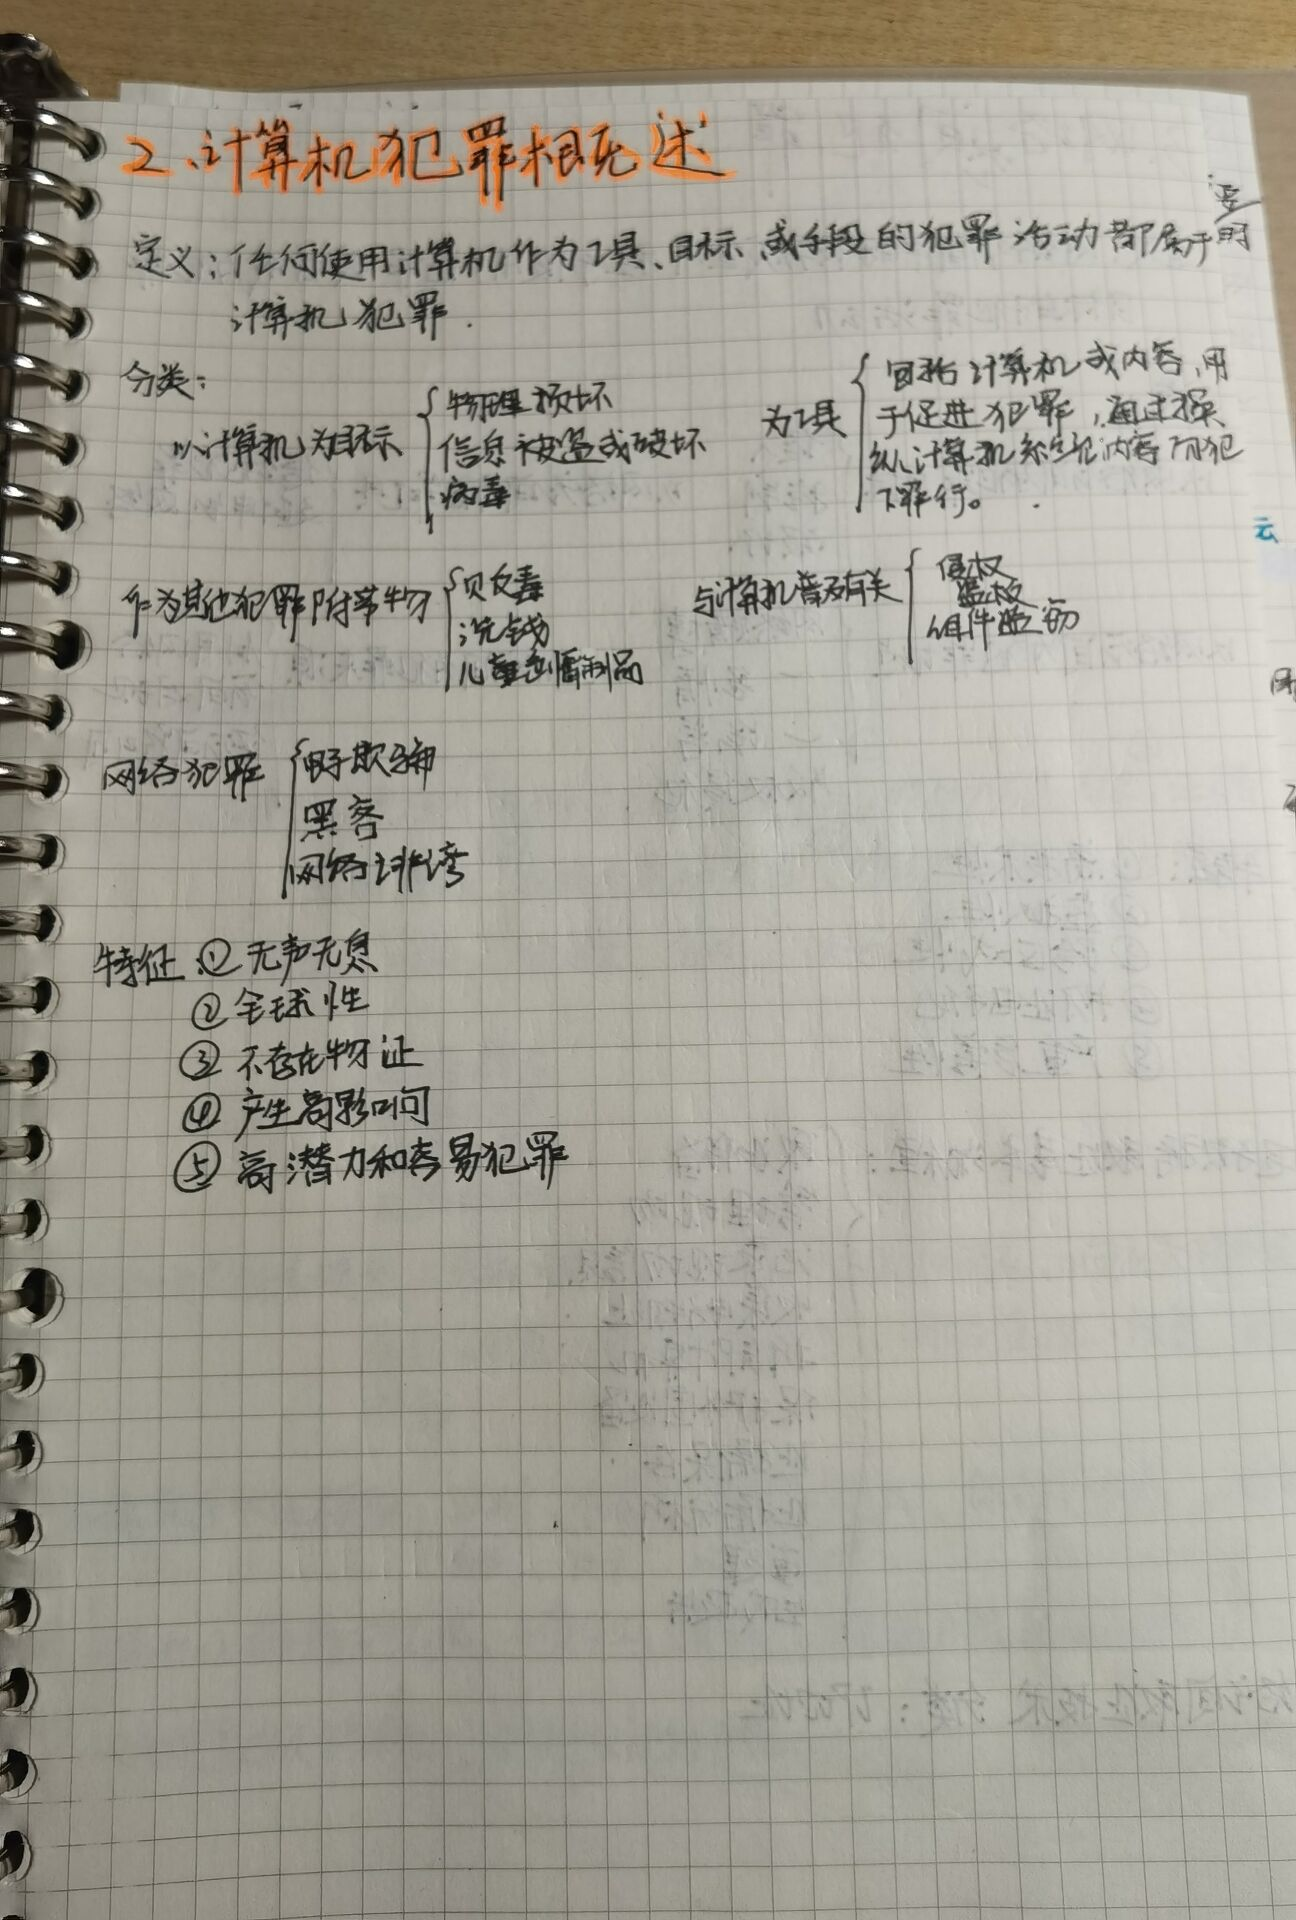 2、计算机犯罪概述
定义：任何使用计算机作为工具、目标、或手段的犯罪活动都属于
计算机犯罪.
分类：
以计算机为目标
物理损坏
信息被盗或破坏
病毒
为工具
包括计算机或内容,用
于促进犯罪,通过操
纵计算机系统内容而犯
下罪行。
作为其他犯罪附带物
贩毒
洗钱
儿童色情制品
与计算机普及有关
侵权
盗版
组件盗窃
网络犯罪
电子欺骗
黑客
网络诽谤
特征：① 无声无息
② 全球性
③ 不存在物证
④ 产生高影响
⑤ 高潜力和容易犯罪
云